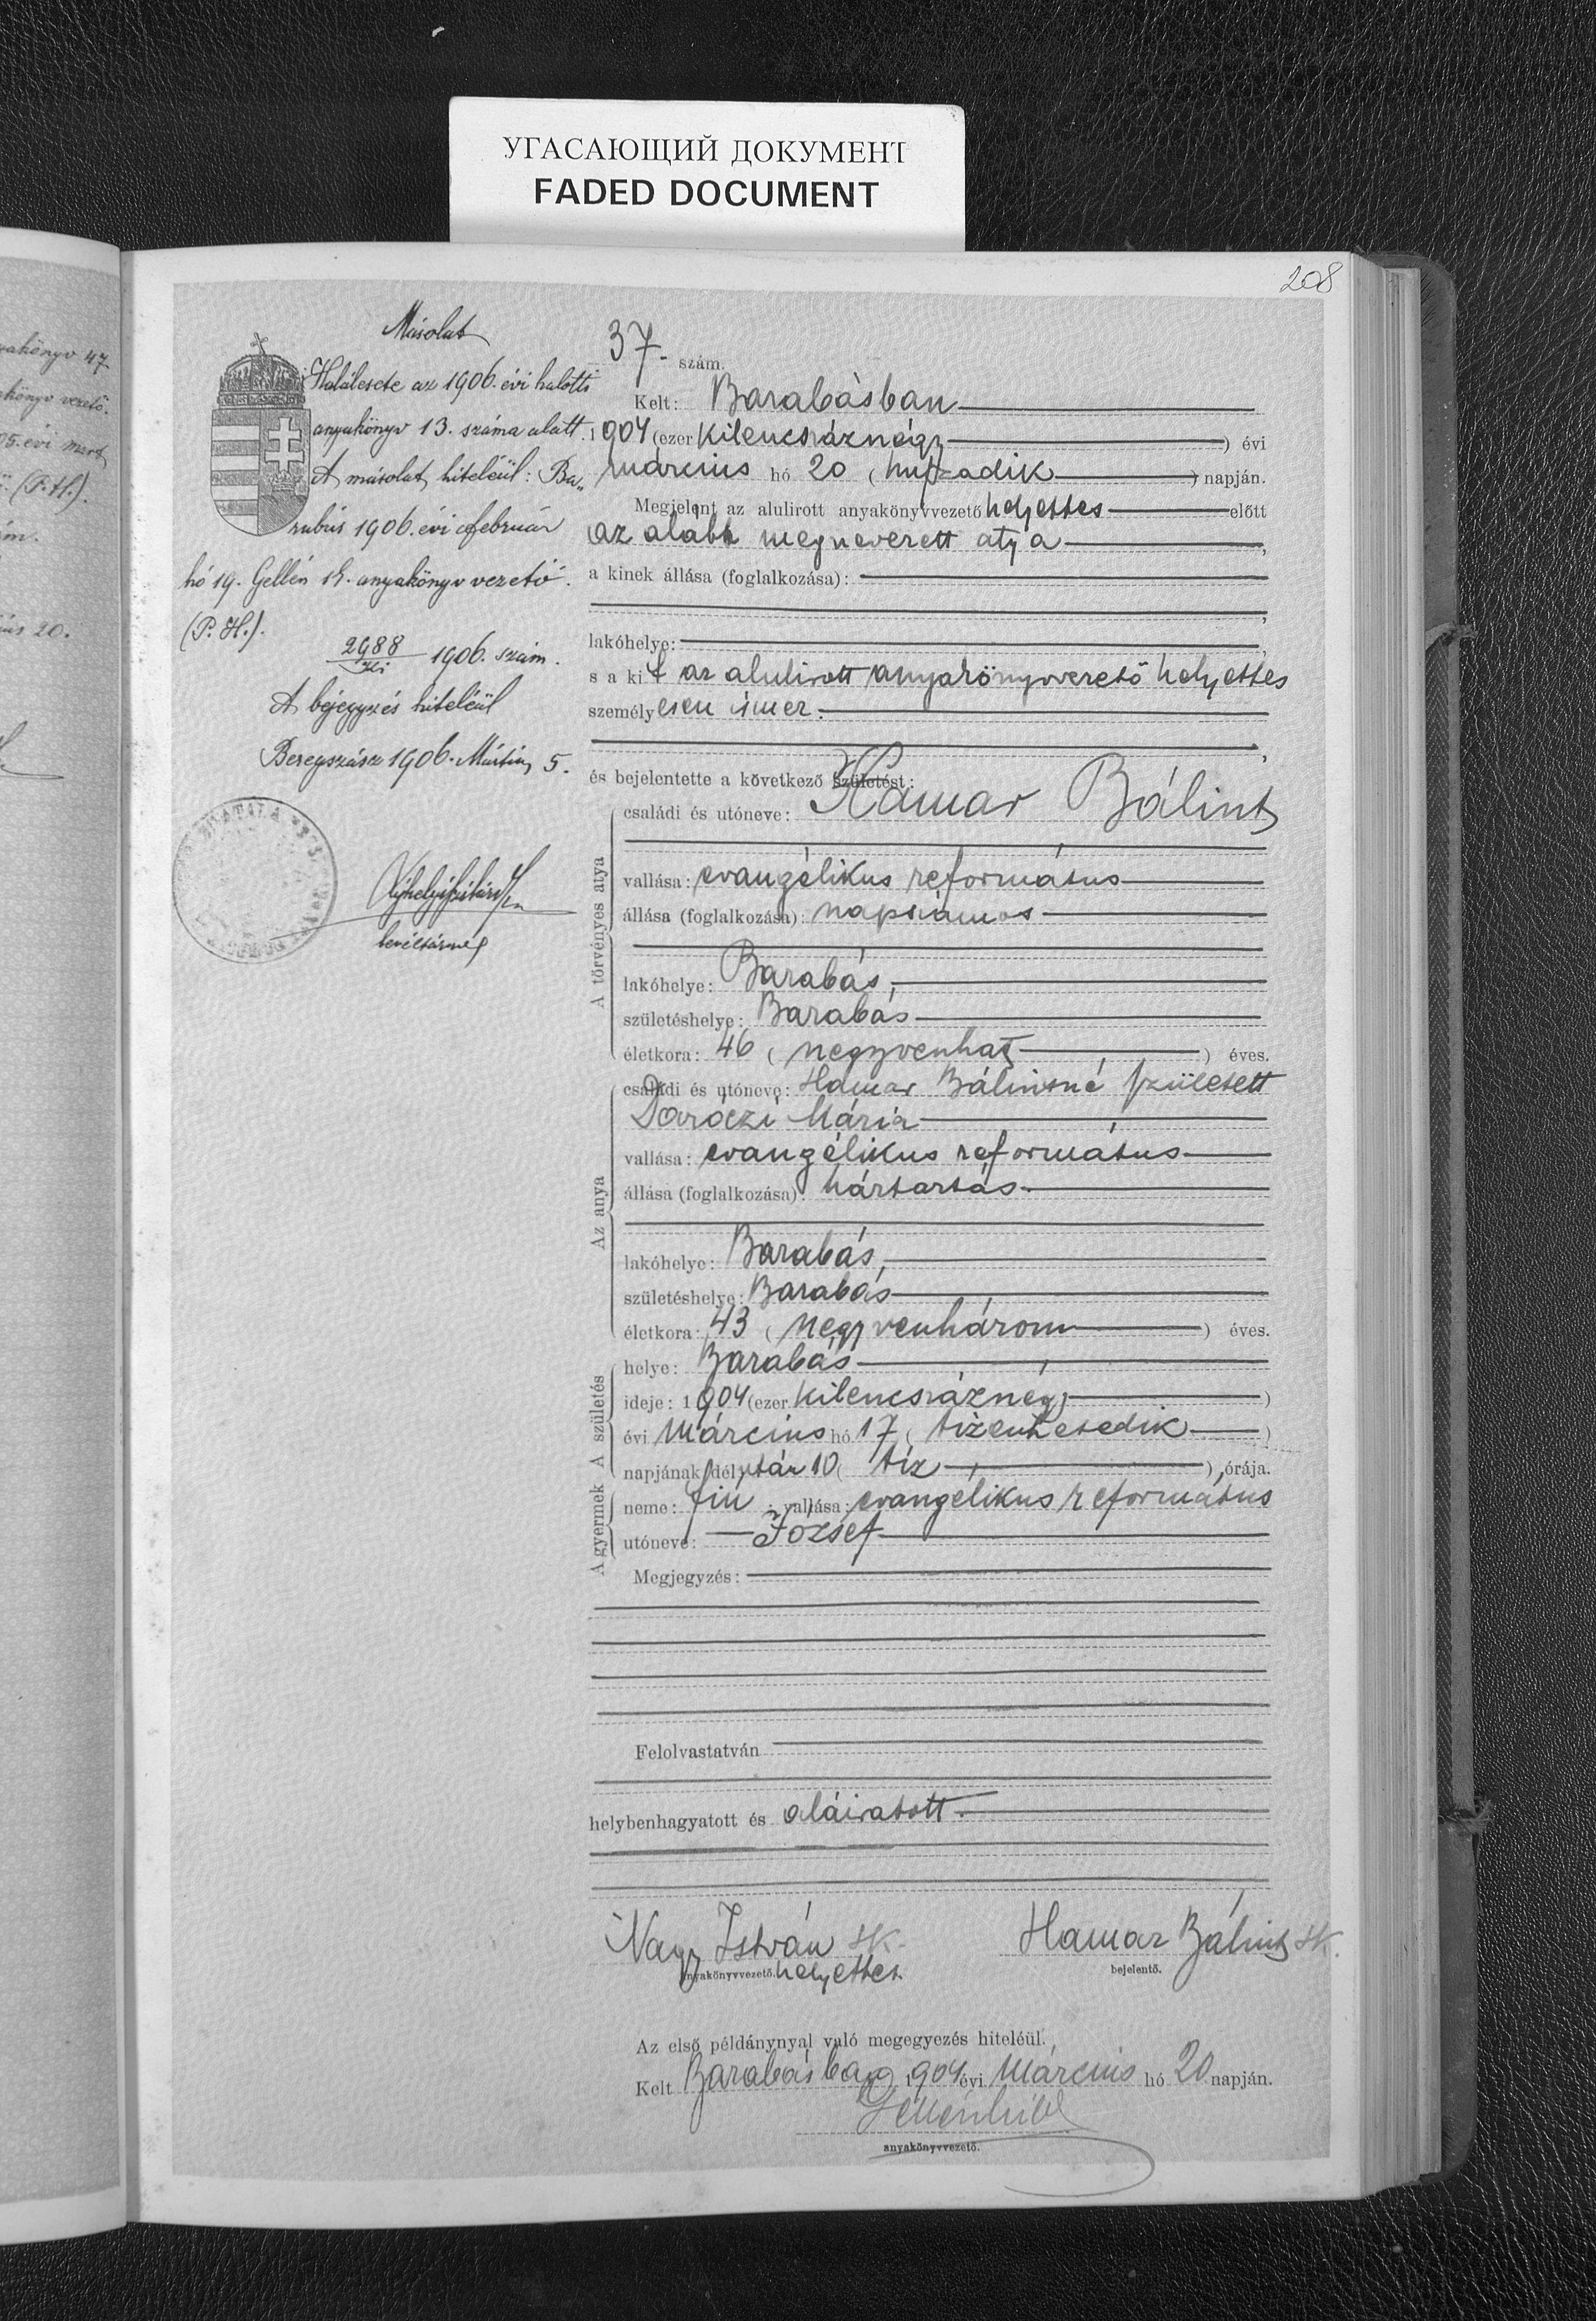 УГАСАЮЩИЙ ДОКУМЕНТ
FADED DOCUMENT
208
yakönyv 47
könyv vezető.
05. évi Márt
(P.H.).
ius 20.
Másolat
Halálesete az 1906. évi halotti
anyakönyv 13. száma alatt.
A másolat hiteléül: Ba„
rabás 1906. évi február
hó 19. Gellén k. anyakönyvvezető.
(P. H.).
2988 1906. szám.
A bejegyzés hiteléül
Beregszász 1906. Mártius 5.
levéltárnok
37. szám.
Kelt: Barabásban
1904 (ezer kilencszáznégy) évi
március hó 20 (huszadik) napján.
Megjelent az alulirott anyakönyvvezető helyettes előtt
az alább megnevezett atya,
a kinek állása (foglalkozása):
lakóhelye:
s a kit az alulirott anyakönyvvezető helyettes
személyesen ismer.
és bejelentette a következő születést:
A törvényes atya
családi és utóneve: Hamar Bálint
vallása: evangélikus református
állása (foglalkozása): napszámos
lakóhelye: Barabás,
születéshelye: Barabás
életkora: 46 (negyvenhat) éves.
Az anya
családi és utóneve: Hamar Bálintné született
Daróczi Mária
vallása: evangélikus református
állása (foglalkozása): háztartás.
lakóhelye: Barabás,
születéshelye: Barabás
életkora: 43 (negyvenhárom) éves.
A születés
helye: Barabás
ideje: 1904 (ezer kilencszáznégy)
évi március hó 17 (tizenhetedik)
napjának délután 10 (tíz) órája.
A gyermek
neme: fiú; vallása: evangélikus református
utóneve: József
Megjegyzés:
Felolvastatván
helybenhagyatott és aláiratott.
Nagy István sk. Hamar Bálint sk.
anyakönyvvezető. helyettes. bejelentő.
Az első példánynyal való megegyezés hiteléül.
Kelt Barabásban 1904 évi március hó 20 napján.
anyakönyvvezető.